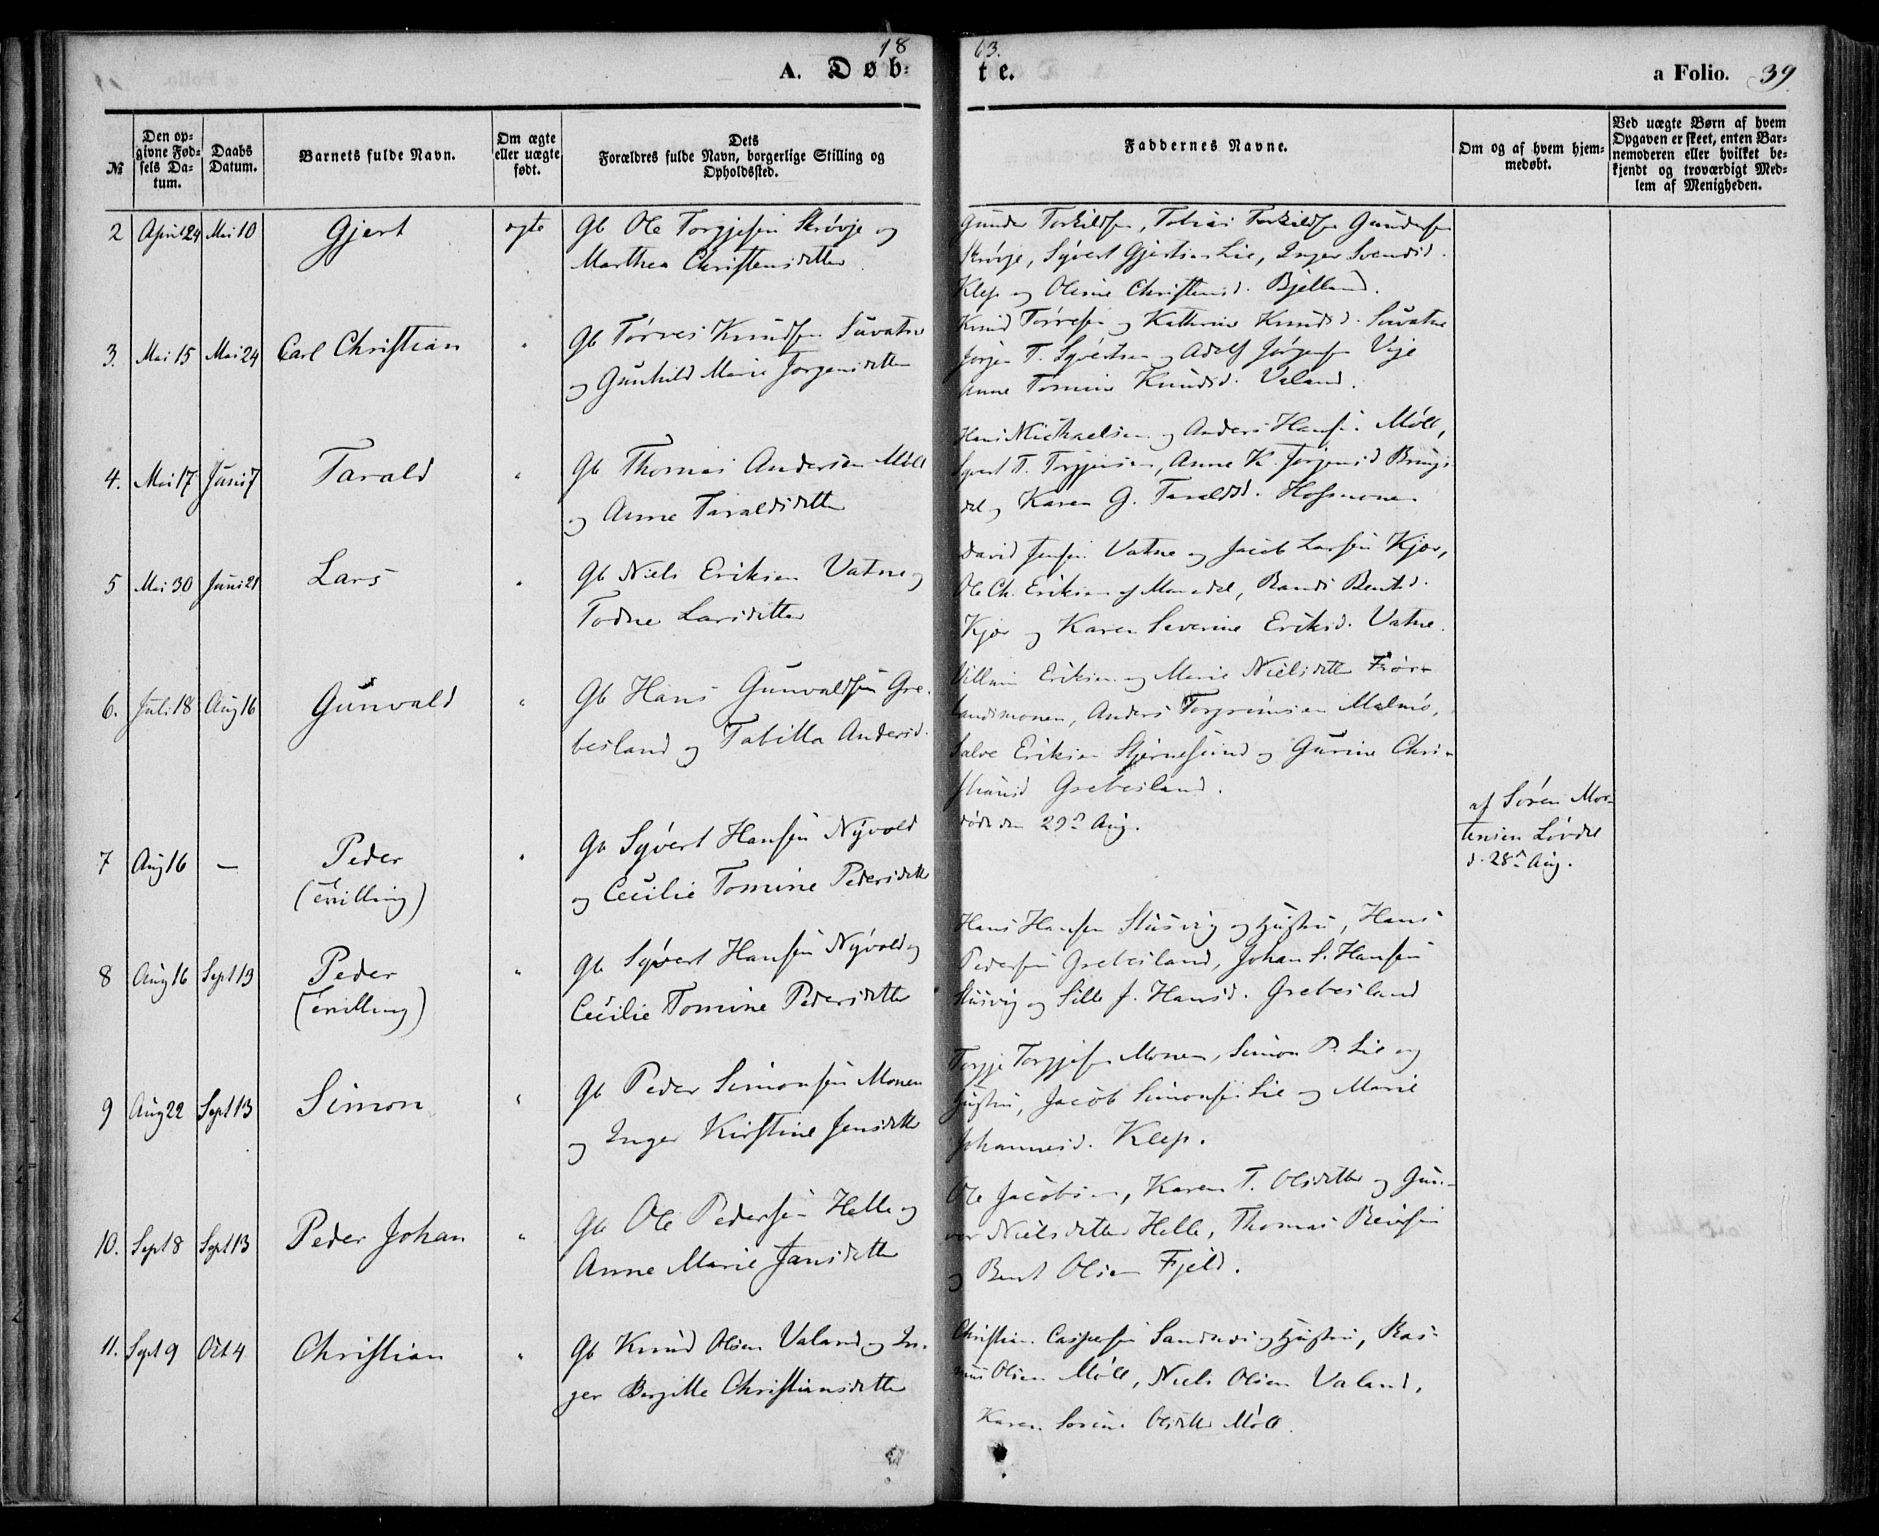 1863.
A. Døbte. a Folio. 39.
№
Den opgivne Fødsels Datum.
Daabs Datum.
Barnets fulde Navn.
Om ægte eller uægte født.
Dets Forældres fulde Navn, borgerlige Stilling og Opholdssted.
Faddernes Navne.
Om og af hvem hjemmedøbt.
Ved uægte Børn af hvem Opgaven er skeet, enten Barnemoderen eller hvilket bekjendt og troværdigt Medlem af Menigheden.
2 April 24 Mai 10 Gjert ægte Gb Ole Torgjesen Skrøvje og
Marthea Christensdatter.
Gunder Torkildsen, Tobias Torkildsen Gundersen
Skrøvje, Syvert Gjertsen Lie, Inger Svendsd.
Klep og Olene Christensd. Bjelland.
3. Mai 15 Mai 24 Carl Christian " Gb Tørres Knudsen Suvatne
og Gunhild Marie Jørgensdatter
Knud Tørresen og Kathrine Knudsd. Suvatne
Jørgen T. Syvertsen og Adolf Jørgensen Veje
Anne Tomine Knudsd. Valand.
4. Mai 17 Juni 7 Tarald " Gb Thomas Andersen Møll
og Anne Taraldsdatter
Hans Michaelsen og Anders Hansen Møll,
Syvert T. Torgjusen, Anne K. Jørgensd Brings
dal og Karen G. Taraldsd. Hofsmonen
5 Mai 30 Juni 21 Lars " Gb Niels Eriksen Vatne og
Todne Larsdatter
David Jensen Vatne og Jacob Larsen Kjær,
Ole Ch. Eriksen af Mandal, Randi Bentsd.
Kjær og Karen Severine Eriksd. Vatne.
6. Juli 18 Aug 16 Gunvald " Gb Hans Gunvaldsen Gre-
besland og Tabitta Andersd.
Villum Eriksen og Marie Nielsdatter
landsmonen, Anders Torgrimsen Malmø,
Salve Eriksen Stjernesund og Gurine Chri-
stiansd Grebesland.
7 Aug 16 — Peder
(Tvilling) " Gb Syvert Hansen Nyvold
og Cecilie Tomine Pedersdatter
døde den 29d Aug.
af Søren Mor-
tensen Løvdal
d. 28d Aug.
8 Aug 16 Sept 13 Peder
(Tvilling) " Gb Syvert Hansen Nyvold og
Cecilie Tomine Pedersdatter
Hans Hansen Stusvig og Hustru, Hans
Pedersen Grebesland, Johan S. Hansen
Stusvig og Sille J. Hansd. Grebesland
9 Aug 22 Sept 13 Simon " Gb Peder Simonsen Monen
og Inger Kirstine Jensdatter
Torgje Torgjesen Monen, Simon P. Lie og
Hustru, Jacob Simonsen Lie og Marie
Johannesd. Klep.
10. Sept 8 Sept 13 Peder Johan " Gb Ole Pedersen Helle og
Anne Marie Jansdatter
Ole Jacobsen, Karen T. Olsdatter og Gun-
vor Nielsdatter Helle, Thomas Reiersen
og Bent Olsen Fjeld.
11. Sept 9 Oct 4 Christian " Gb Knud Olsen Valand og In-
ger Birgitte Christiansdatter
Christian Caspersen Sandnæs og Hustru, Ras-
mus Olsen Møll, Niels Olsen Valand,
Karen Sorine Olsdatter Møll.